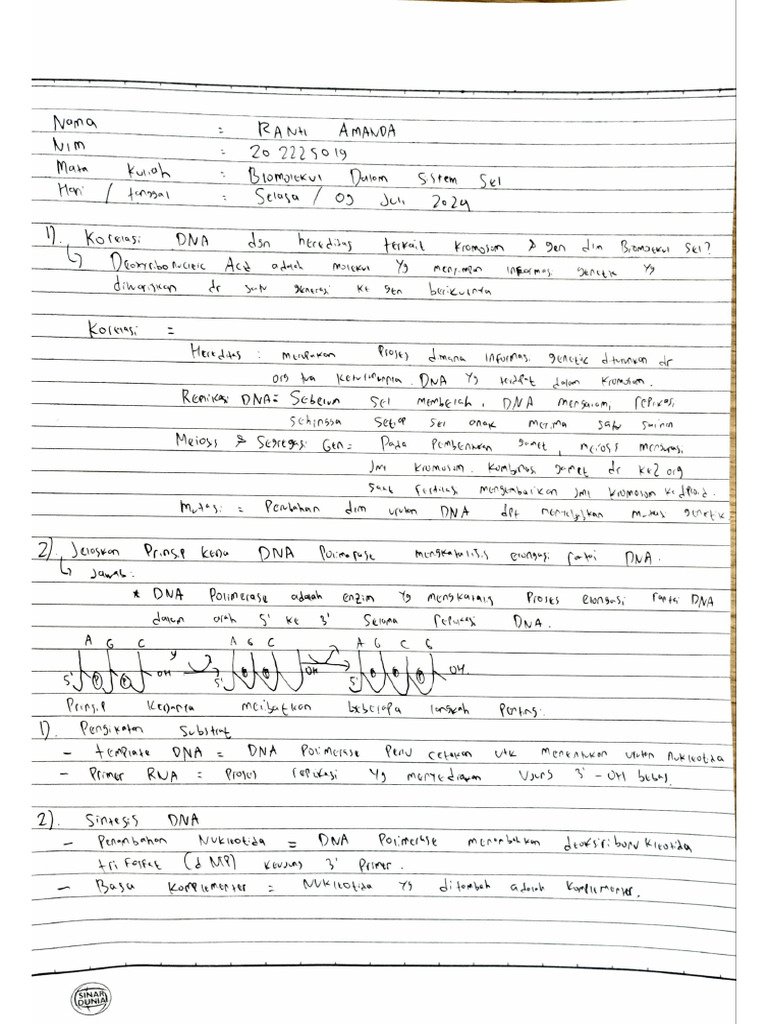 Nama : RANTI AMANDA
NIM : 202225019
Mata Kuliah : Biomolekul Dalam Sistem Sel
Hari / tanggal : Selasa / 09 Juli 2024
1). Korelasi DNA dgn hereditas terkait kromosom & gen dlm Biomolekul Sel?
↳ Deoxyribo Nucleic Acid adalah molekul yg menyimpan informasi genetik yg
diwariskan dr satu generasi ke gen berikutnya
Korelasi =
Hereditas : merupakan proses dimana informasi genetik diturunkan dr
org tua keturunannya. DNA yg terdpat dalam kromosom.
Replikasi DNA = Sebelum sel membelah, DNA mengalami replikasi
sehingga setiap sel anak menrima satu salinan
Meiosis & Segregasi Gen = Pada pembentukan gamet, meiosis mengurangi
jml kromosom. Kombinasi gamet dr ke2 org
saat fertilisasi mengembalikan jml kromosom ke diploid.
Mutasi = Perubahan dlm urutan DNA dpt menyebabkan mutasi genetik.
2). Jelaskan Prinsip kerja DNA Polimerase mengkatalisis elongasi rantai DNA.
↳ Jawab:
* DNA Polimerase adalah enzim yg mengkatalis proses elongasi rantai DNA
dalam arah 5' ke 3' selama replikasi DNA.
A G C A G C A G C G
5' P P OH 5' P P OH 5' P P P OH.
Prinsip kerjanya melibatkan beberapa langkah penting:
1). Pengikatan Substrat
- template DNA = DNA Polimerase perlu cetakan utk menentukan urutan nukleotida
- Primer RNA = Proses replikasi yg menyediakan ujung 3' - OH bebas.
2). Sintesis DNA
- Penambahan Nukleotida = DNA Polimerase menambahkan deoksiribonukleotida
trifosfat (dNTP) keujung 3' Primer.
- Basa Komplementer = Nukleotida yg ditambah adalah komplementer.
SINAR
DUNIA